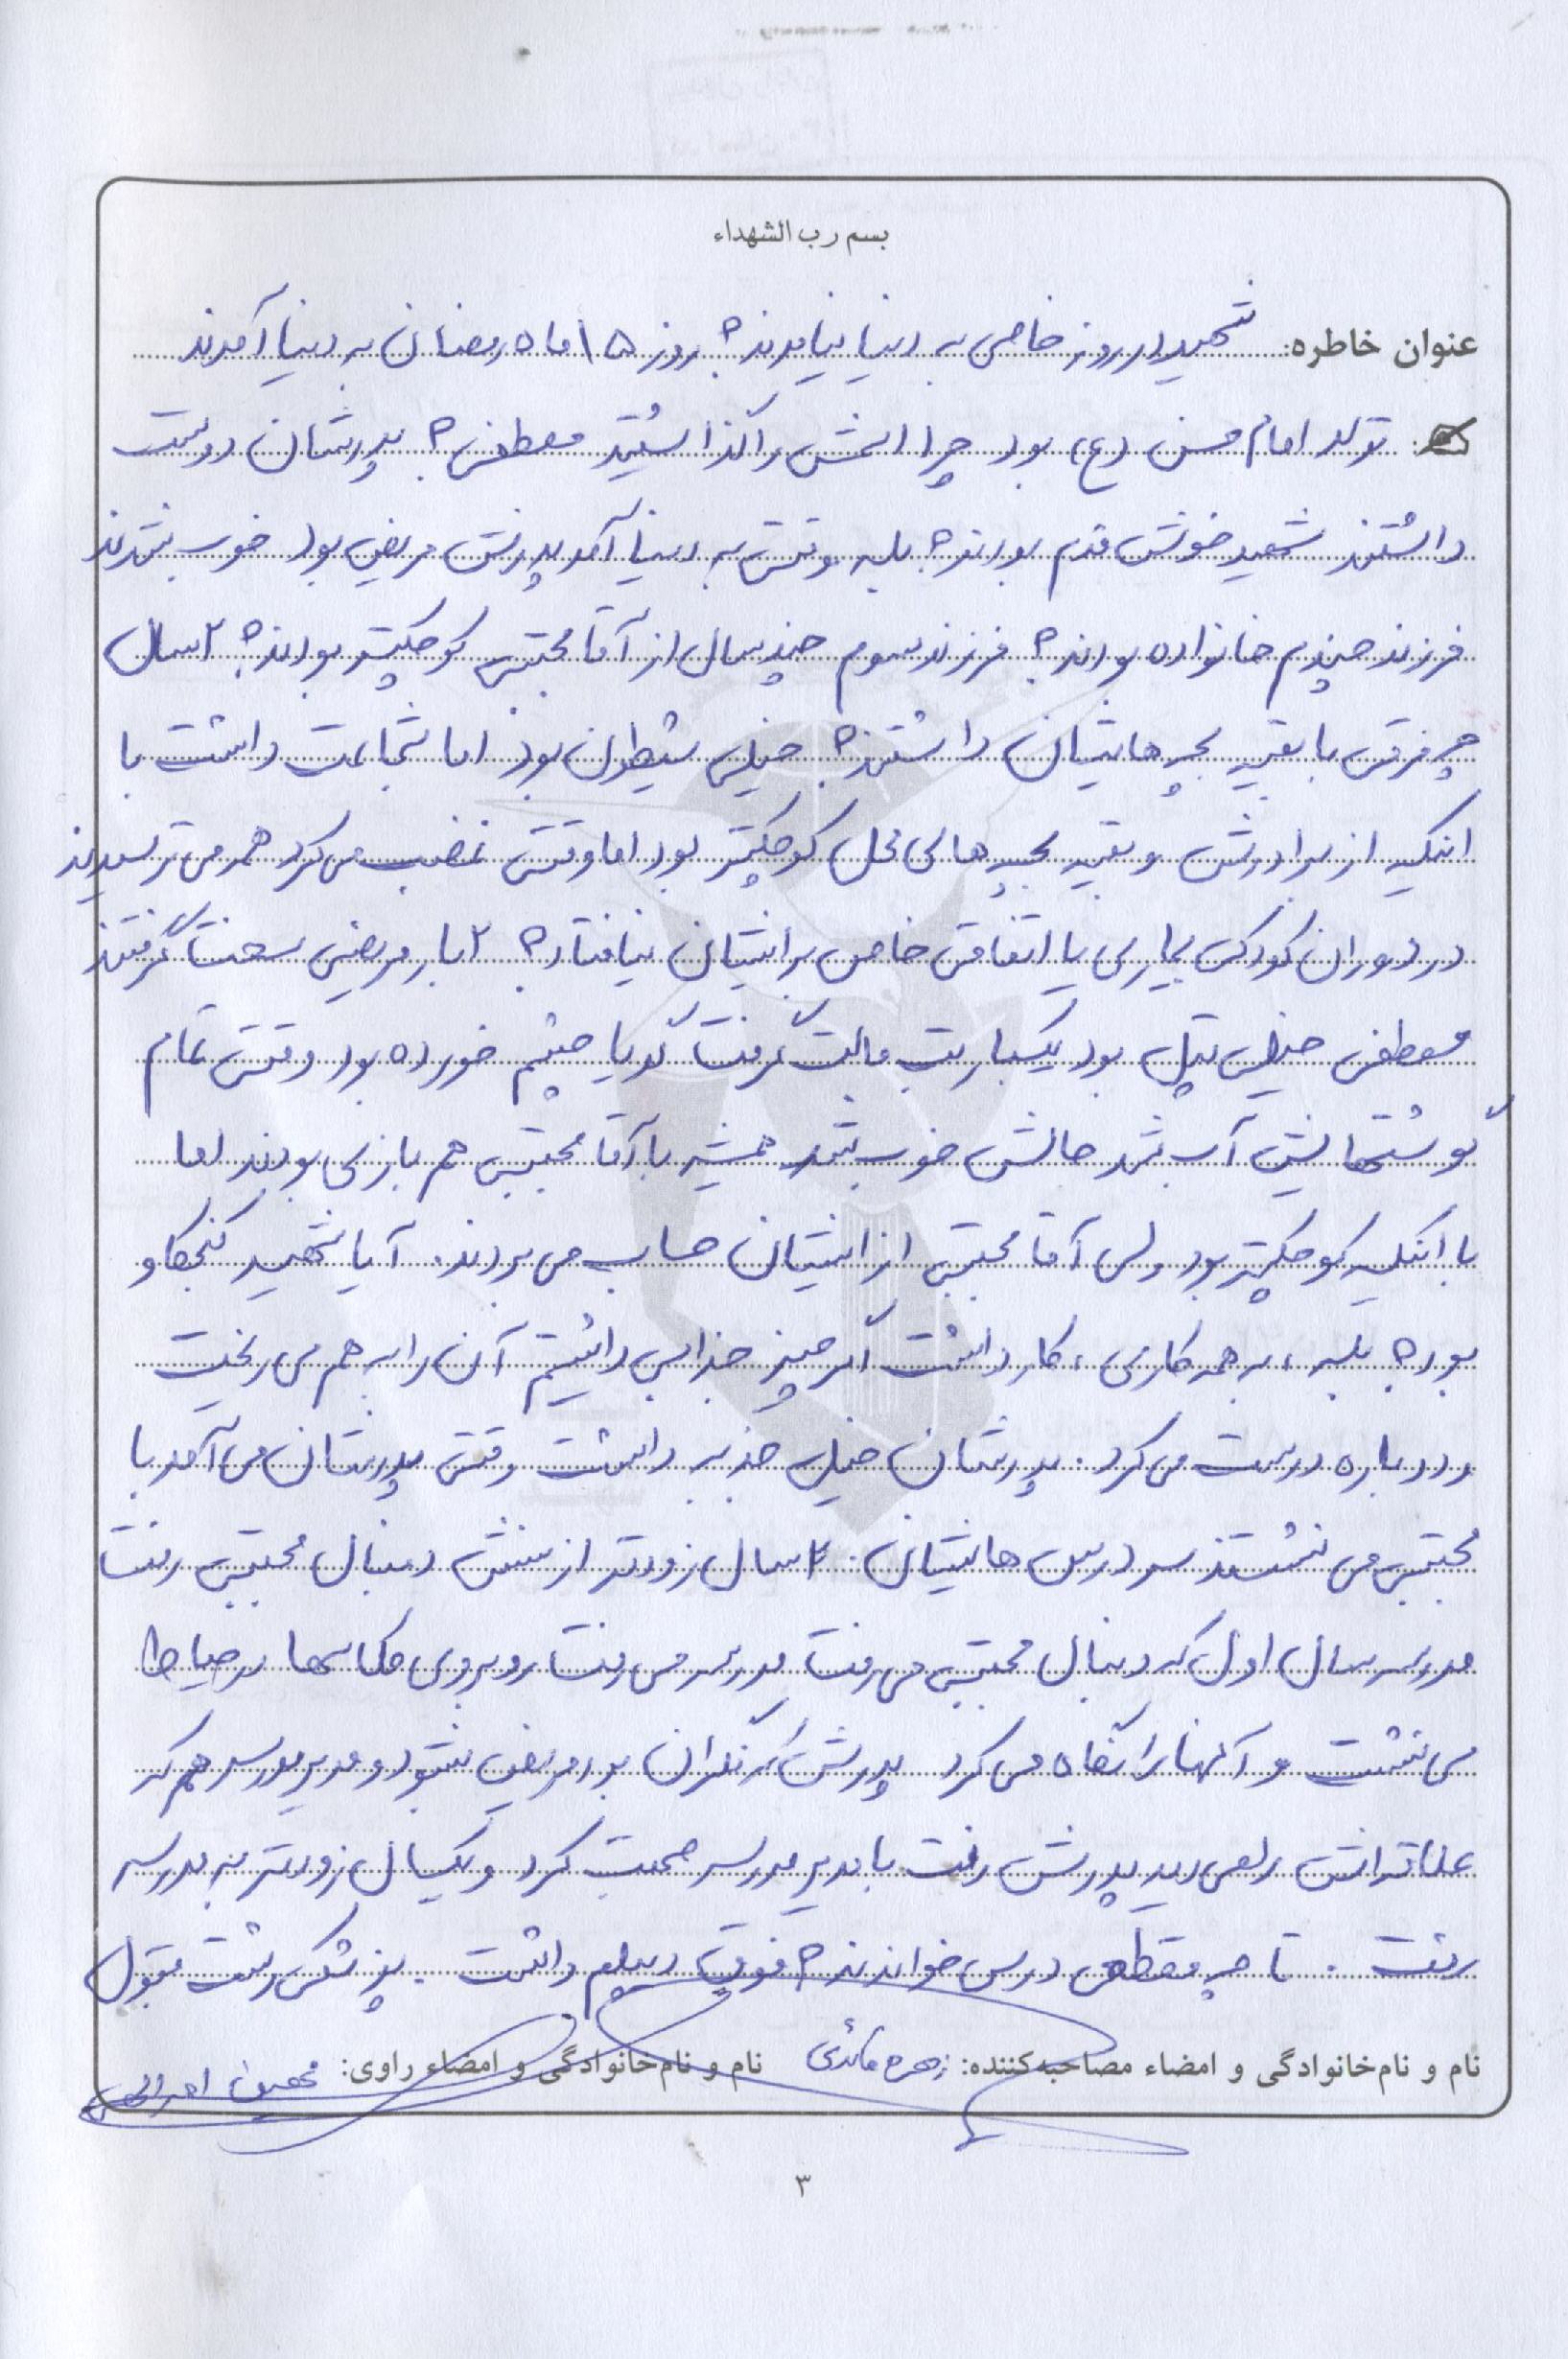 بسم رب الشهداء
عنوان خاطره: شهید در روز خاصی به دنیا نیامدند؟ روز ۱۵ ماه رمضان به دنیا آمدند
تولد امام حسن (ع) بود چرا اسمش را گذاشتید مصطفی؟ پدرشان دوست
داشتند شهید خوش قدم بودند؟ بله وقتی به دنیا آمد پدرش مریض بود خوب شدند
فرزند چندم خانواده بودند؟ فرزند سوم چند سال از آقا مجتبی کوچکتر بودند؟ ۲ سال
چه فرقی با بقیه بچه هایتان داشتند؟ خیلی شیطون بود اما شجاعت داشت با
اینکه از برادرش و بقیه بچه های محل کوچکتر بود اما وقتی غضب می کرد همه می ترسیدند
در دوران کودکی بیماری یا اتفاقی خاص برایشان نیافتاد؟ ۲ بار مریضی سخت گرفتند
مصطفی خیلی تپل بود یکبار تب مالت گرفت گویا چشم خورده بود وقتی تمام
گوشتهایش آب شد حالش خوب شد همیشه با آقا مجتبی هم بازی بودند اما
با اینکه کوچکتر بود ولی آقا مجتبی از ایشان حساب می بردند. آیا شهید کنجکاو
بود؟ بله، به همه کاری، کار داشت اگر چیز جذابی داشتیم آن را به هم می ریخت
و دوباره درست می کرد. پدرشان خیلی جذبه داشت وقتی پدرشان می آمد با
مجتبی می نشستند سر درس هایشان. ۲ سال زودتر از سنش دنبال مجتبی رفت
مدرسه سال اول که دنبال مجتبی می رفت مدرسه می رفت روبروی کلاسها در حیاط
می نشست و آنها را نگاه می کرد پدرش که نگران بود مریض نشود و مدیر مدرسه هم که
علاقه اش را می دید پدرش رفت با مدیر مدرسه صحبت کرد و یکسال زودتر به مدرسه
رفت. تا چه مقطعی درس خواندند؟ فوق دیپلم داشت. پزشکی رشت قبول
نام و نام‌خانوادگی و امضاء مصاحبه‌کننده: زهره نام و نام‌خانوادگی و امضاء راوی:
۳